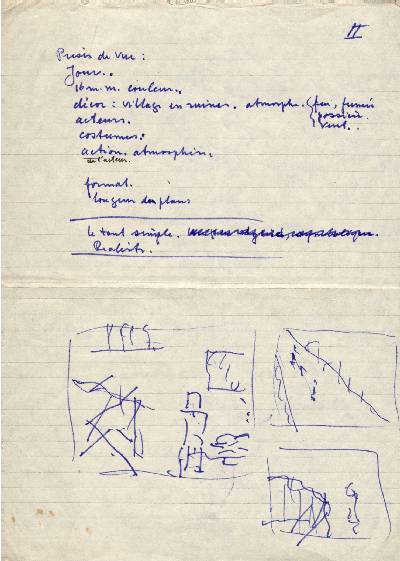 II
Prises de vue :
Jour..
16 m.m. couleur..
décor : village en ruines. atmosph. feu, fumée
poussière.
vent..
acteurs.
costumes.
action. atmosphère.
de l'acteur.
format.
longueur des plans
le tout simple.
Réaliste.